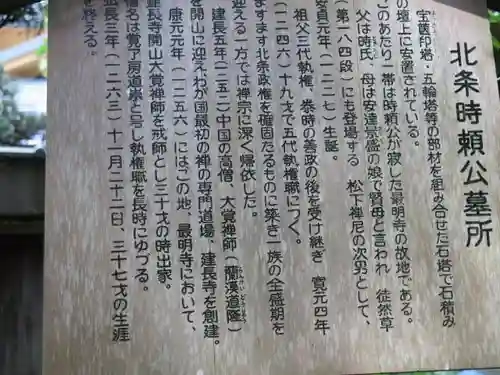 北条時頼公墓所
宝篋印塔・五輪塔等の部材を組み合せた石塔で石積み
の壇上に安置されている。
このあたり一帯は時頼公が寂した最明寺の故地である。
父は時氏 母は安達景盛の娘で賢母と言われ 徒然草
(第一八四段)にも登場する 松下禅尼の次男として、
安貞元年(一二二七)生誕。
祖父三代執権、泰時の善政の後を受け継ぎ 寛元四年
(一二四六)十九才で五代執権職につく。
ますます北条政権を確固たるものに築き一族の全盛期を
迎える一方では禅宗に深く帰依した。
建長五年(一二五三)中国の高僧、大覚禅師(蘭渓道隆)
を開山に迎えわが国最初の禅の専門道場、建長寺を創建。
康元元年(一二五六)にはこの地、最明寺において、
建長寺開山大覚禅師を戒師とし三十才の時出家。
僧名は覚了房道崇と号し執権職を長時にゆづる。
弘長三年(一二六三)十一月二十二日、三十七才の生涯
を終える。